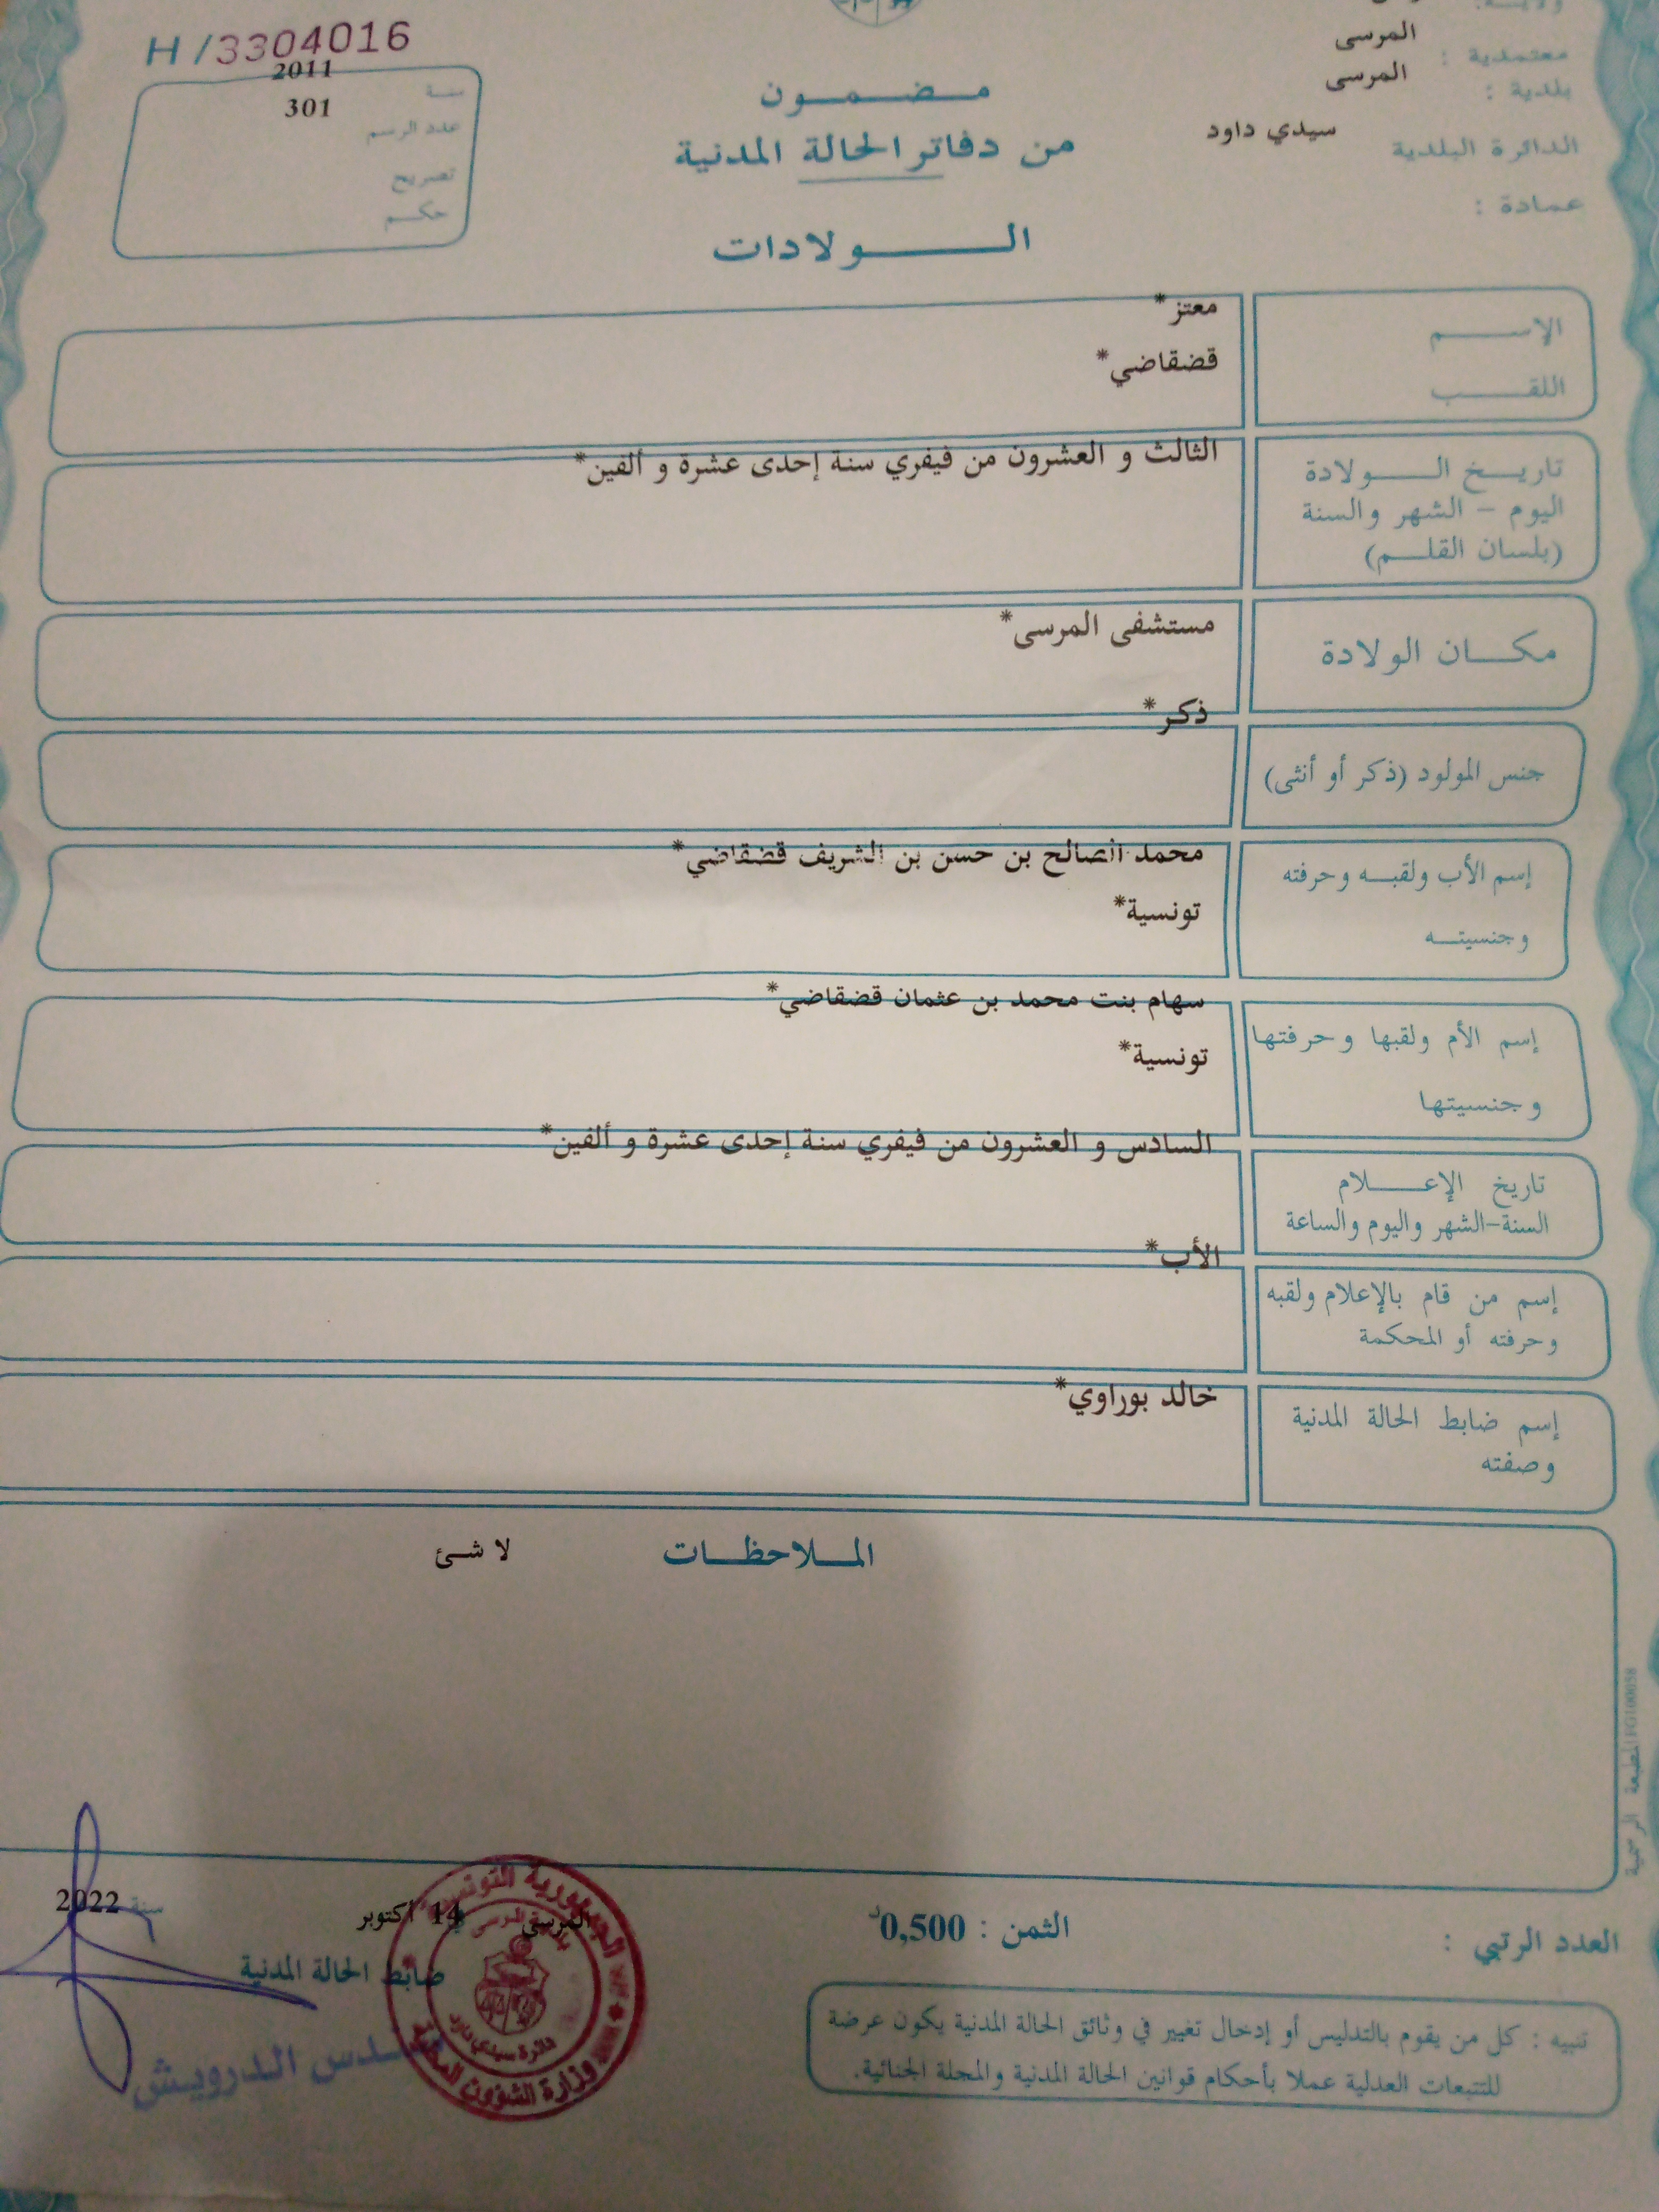 H/3304016
سنة 2011
عدد الرسم 301
تصريح
حكم
المرسى
معتمدية :
المرسى
بلدية :
الدائرة البلدية سيدي داود
عمادة :
مضمون
من دفاتر الحالة المدنية
الولادات
الإسم معتز*
اللقب قضقاضي*
تاريخ الولادة
اليوم - الشهر والسنة
(بلسان القلم)
الثالث و العشرون من فيفري سنة إحدى عشرة و ألفين*
مكان الولادة
مستشفى المرسى*
جنس المولود (ذكر أو أنثى)
ذكر*
إسم الأب ولقبه وحرفته
محمد الصالح بن حسن بن الشريف قضقاضي*
وجنسيته
تونسية*
إسم الأم ولقبها وحرفتها
سهام بنت محمد بن عثمان قضقاضي*
وجنسيتها
تونسية*
تاريخ الإعلام
السنة-الشهر واليوم والساعة
السادس و العشرون من فيفري سنة إحدى عشرة و ألفين*
إسم من قام بالإعلام ولقبه
وحرفته أو المحكمة
الأب*
إسم ضابط الحالة المدنية
وصفته
خالد بوراوي*
الملاحظات لا شئ
المطبعة الرسمية
العدد الرتبي :
الثمن : 0,500د
المرسى 14 أكتوبر سنة 2022
ضابط الحالة المدنية
الدرويش
الجمهورية التونسية
وزارة الشؤون المحلية
دائرة سيدي داود
تنبيه : كل من يقوم بالتدليس أو إدخال تغيير في وثائق الحالة المدنية يكون عرضة
للتتبعات العدلية عملا بأحكام قوانين الحالة المدنية والمجلة الجنائية.